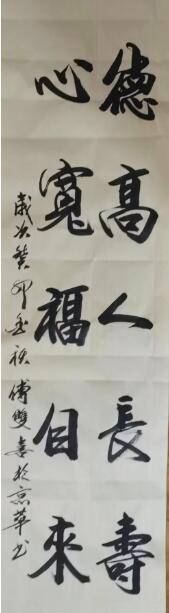 德高人長壽
心寬福自來
歲次癸卯金秋傅雙喜於京華書